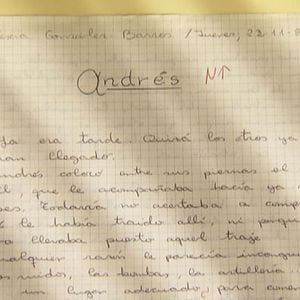 Gonzalez Barros / Jueves, 22-11-8
Andrés N↑
Ya era tarde. Quizá los otros ya
an llegado.
ndrés colocó entre sus piernas el
l, que le acompañaba hacía y
es. Todavía no acertaba a comp
le había traído allí, ni porqu
a llevaba puesto aquel traje
ualquier razón le parecía incongru
os nidos, las bombas, la artillería.
un lugar adecuado, para comen